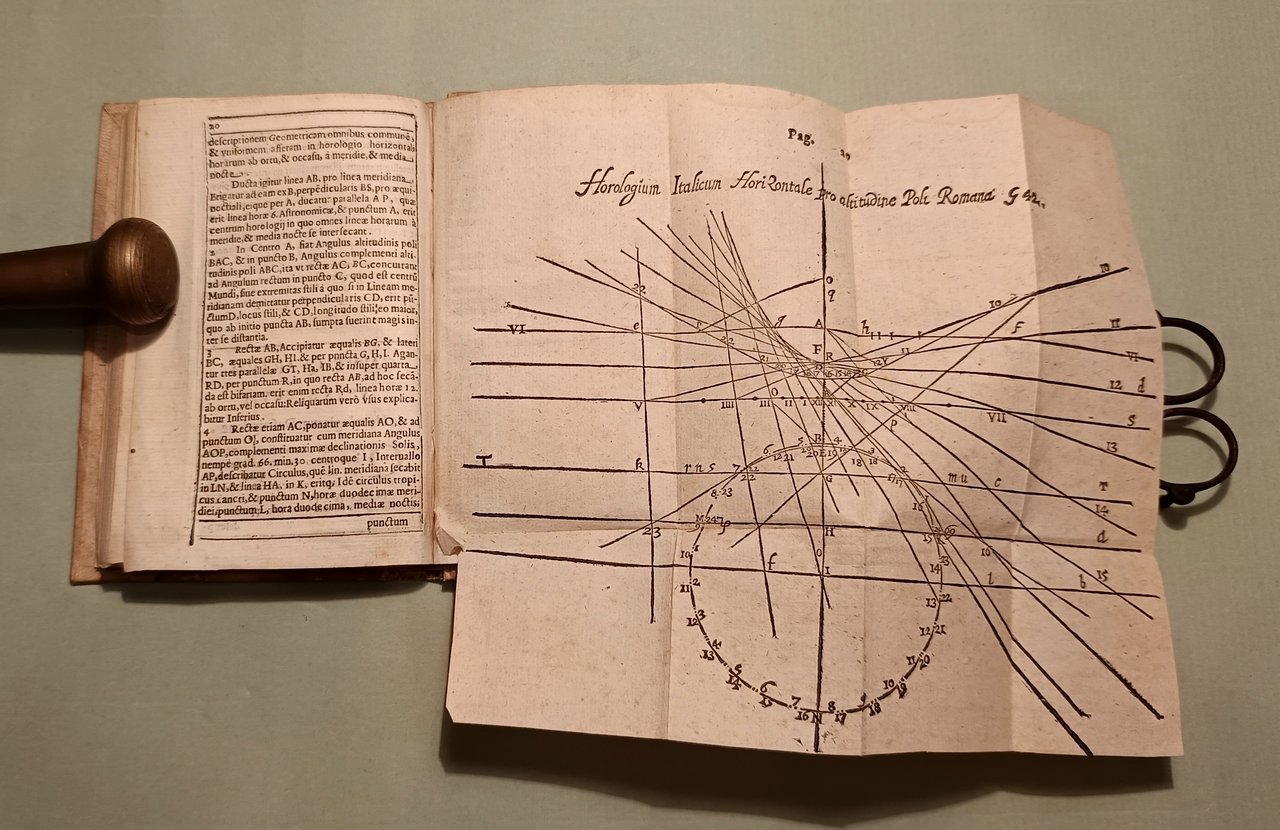 20
descriptionem Geometricam omnibus communẽ,
& vniformem afferam in horologio horizontali
horarum ab ortu, & occasu, a meridie, & media
nocte.
Ducta igitur linea AB, pro linea meridiana
Erigatur ad eam ex B, perpẽdicularis BS, pro æqui-
noctiali, eique per A, ducatur parallela AP, quæ
erit linea horæ 6. Astronomicæ, & punctum A, erit
centrum horologij in quo omnes lineæ horarum à
meridie, & media nocte se intersecant.
2
In Centro A, fiat Angulus altitudinis poli
BAC, & in puncto B, Angulus complementi alti-
tudinis poli ABC, ita vt rectæ AC, BC, concurrant
ad Angulum rectum in puncto C, quod est centrũ
Mundi, siue extremitas stili à quo si in Lineam me-
ridianam demittatur perpendicularis CD, erit pũ-
ctum D, locus stili, & CD, longitudo stili, eo maior,
quo ab initio puncta AB, sumpta fuerint magis in-
ter se distantia.
3
Rectæ AB, Accipiatur æqualis BG, & lateri
BC, æquales GH, HI. & per puncta G, H, I. Agan-
tur tres parallelæ GT, Ha, IB, & insuper quarta
RD, per punctum R, in quo recta AB, ad hoc secã-
da est bifariam. erit enim recta Rd, linea horæ 12.
ab ortu, vel occasu: Reliquarum verò vsus explica-
bitur Inferius.
4
Rectæ etiam AC, ponatur æqualis AO, & ad
punctum O, constituatur cum meridiana Angulus
AOP, complementi maximæ declinationis Solis,
nempe grad. 66. min. 30. centroque I, Interuallo
AP, describatur Circulus, qué lin. meridiana secabit
in LN, & linea HA, in K, eritq; Idẽ circulus tropi-
cus cancri, & punctum N, horæ duodecimæ meri-
diei, punctum L, hora duodecima, mediæ noctis,
punctum
Pag. 20
Horologium Italicum Horizontale pro altitudine Poli Romana G 42.
O
q
22
10
10
VI
e
r
q
A
h
I
f
11
22
F
R
11
VI
21
12
12
d
V
IIII
III
O
II
I
XII
XI
X
IX
VIII
VII
s
P
13
B
T
k
r n s
7
G
m u
c
T
8 23
14
23
M 24
φ
H
d
10
f
O
I
16
l
b
15
11 2
14
13 22
12 3
12 21
13
11 20
5
14
10
19
6
15
18
7
16
N
8
17